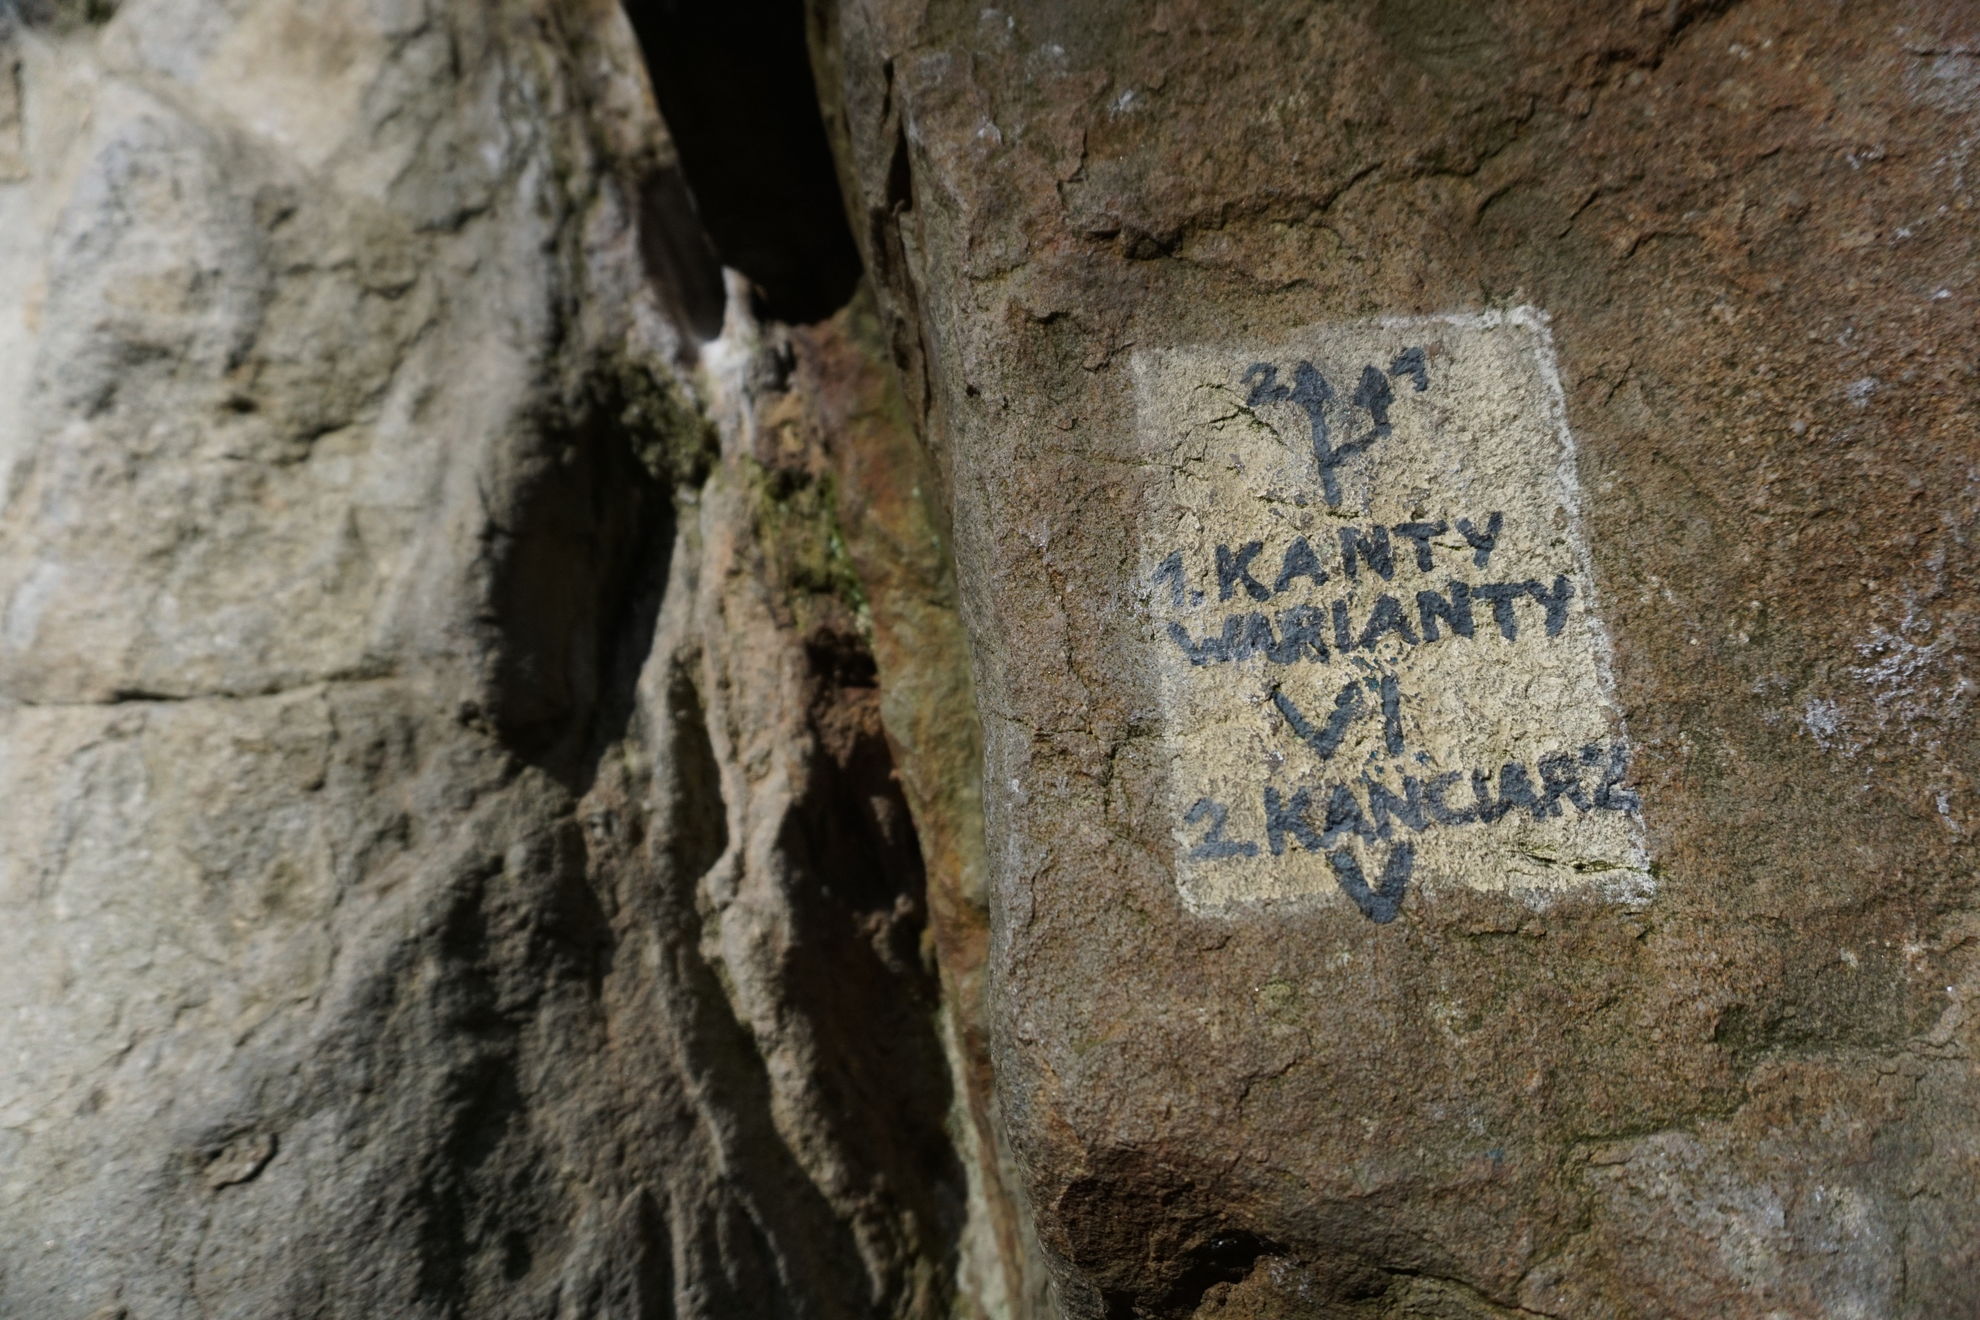 2 1
1. KANTY
WARIANTY
VI
2. KANCIARZ
V